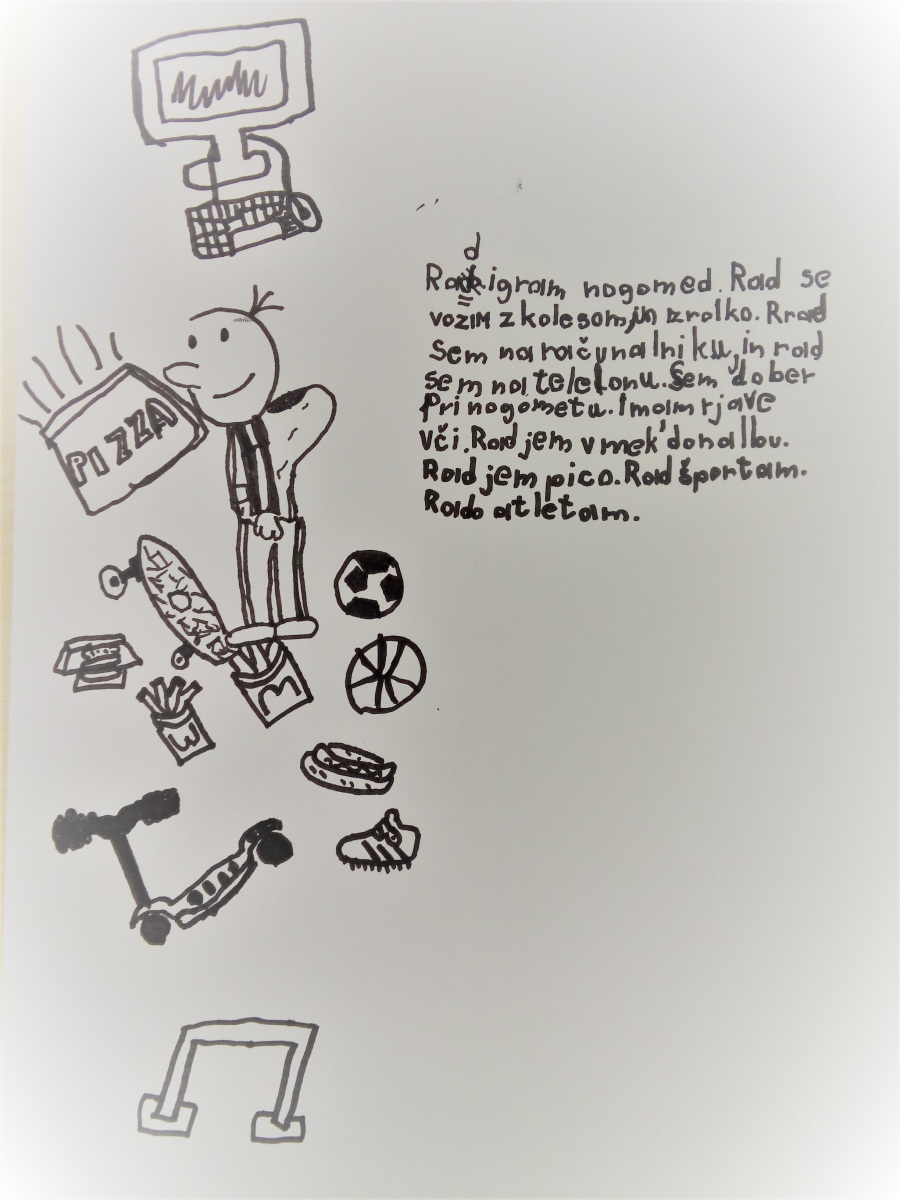 PIZZA
Rad igram nogomed. Rad se
vozim z kolesom, in zrolko. Rrad
sem na računalniku, in rad
sem na telefonu. Sem dober
pri nogometu. Imam rjave
vči. Rad jem v mek donaldu.
Rad jem pico. Rad športam.
Rado atletam.